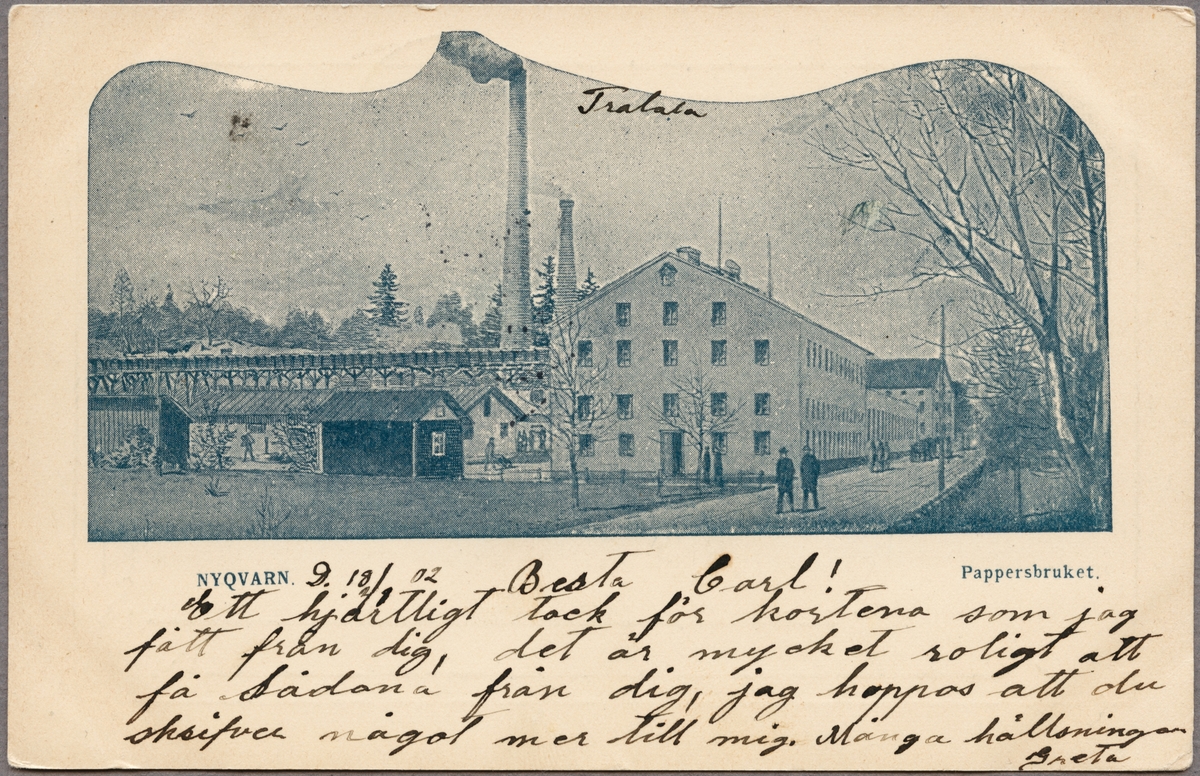 Tralala
NYQVARN. D. 18/2 02 Besta Carl! Pappersbruket.
Ett hjärtligt tack för kortena som jag
fått från dig, det är mycket roligt att
få sådana från dig, jag hoppas att du
skrifver något mer till mig. Många hällsningar
Greta